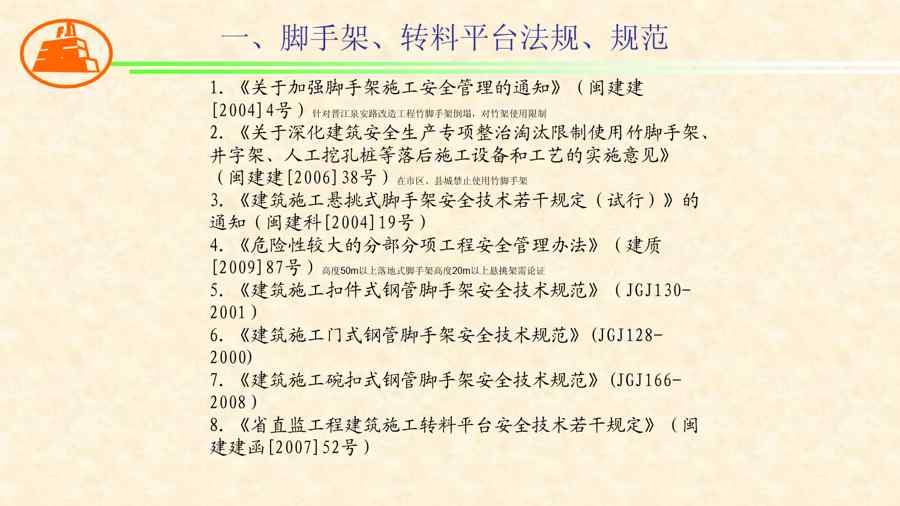 一、脚手架、转料平台法规、规范
1. 《关于加强脚手架施工安全管理的通知》（闽建建
[2004]4号）针对晋江泉安路改造工程竹脚手架倒塌，对竹架使用限制
2. 《关于深化建筑安全生产专项整治淘汰限制使用竹脚手架、
井字架、人工挖孔桩等落后施工设备和工艺的实施意见》
（闽建建[2006]38号）在市区，县城禁止使用竹脚手架
3. 《建筑施工悬挑式脚手架安全技术若干规定（试行）》的
通知（闽建科[2004]19号）
4. 《危险性较大的分部分项工程安全管理办法》（建质
[2009]87号）高度50m以上落地式脚手架高度20m以上悬挑架需论证
5. 《建筑施工扣件式钢管脚手架安全技术规范》（JGJ130-
2001）
6. 《建筑施工门式钢管脚手架安全技术规范》(JGJ128-
2000)
7. 《建筑施工碗扣式钢管脚手架安全技术规范》(JGJ166-
2008）
8. 《省直监工程建筑施工转料平台安全技术若干规定》（闽
建建函[2007]52号）